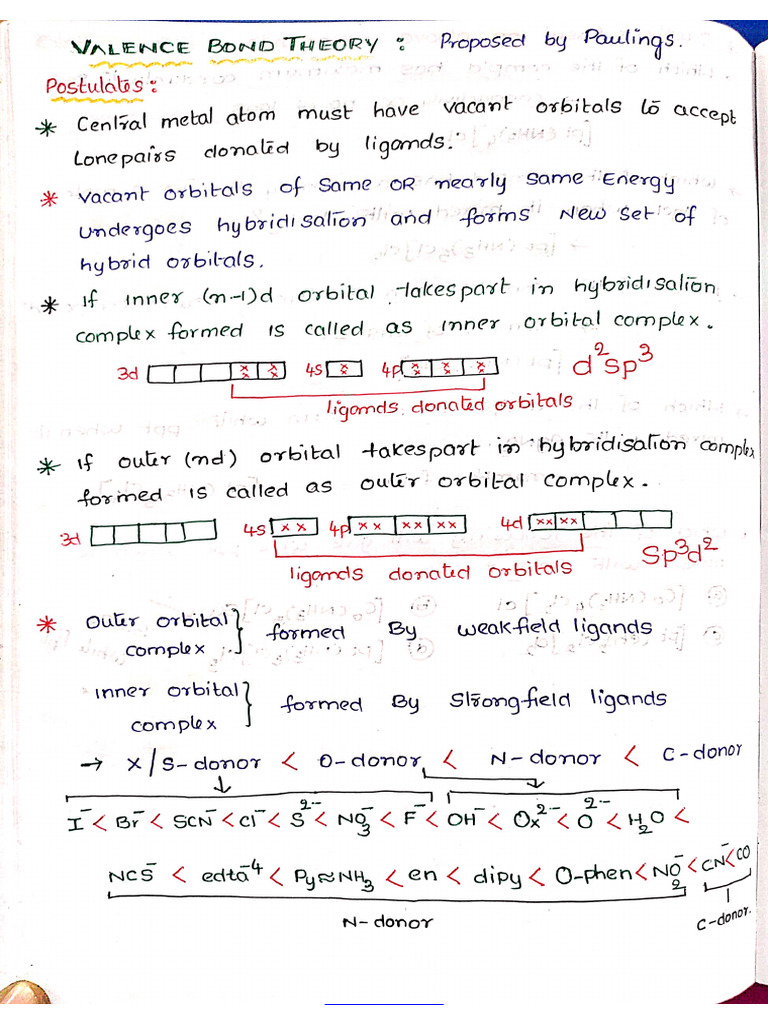 VALENCE BOND THEORY : Proposed by Paulings.
Postulates :
* Central metal atom must have vacant orbitals to accept
Lonepairs donated by ligands.
* Vacant orbitals of same OR nearly same Energy
undergoes hybridisation and forms New set of
hybrid orbitals.
* If inner (n-1)d orbital takespart in hybridisation
complex formed is called as inner orbital complex.
3d 4s xx 4p xx xx xx d²sp³
ligands donated orbitals
* If outer (nd) orbital takespart in hybridisation complex
formed is called as outer orbital complex.
3d 4s xx 4p xx xx xx 4d xx xx
sp³d²
ligands donated orbitals
* Outer orbital complex } formed By weakfield ligands
inner orbital complex } formed By Strongfield ligands
→ X/S-donor < O-donor < N-donor < C-donor
I⁻ < Br⁻ < SCN⁻ < Cl⁻ < S²⁻ < NO₃⁻ < F⁻ < OH⁻ < Ox²⁻ < O²⁻ < H₂O <
NCS⁻ < edta⁻⁴ < Py≈NH₃ < en < dipy < O-phen < NO₂⁻ < CN⁻ < CO
N-donor C-donor.